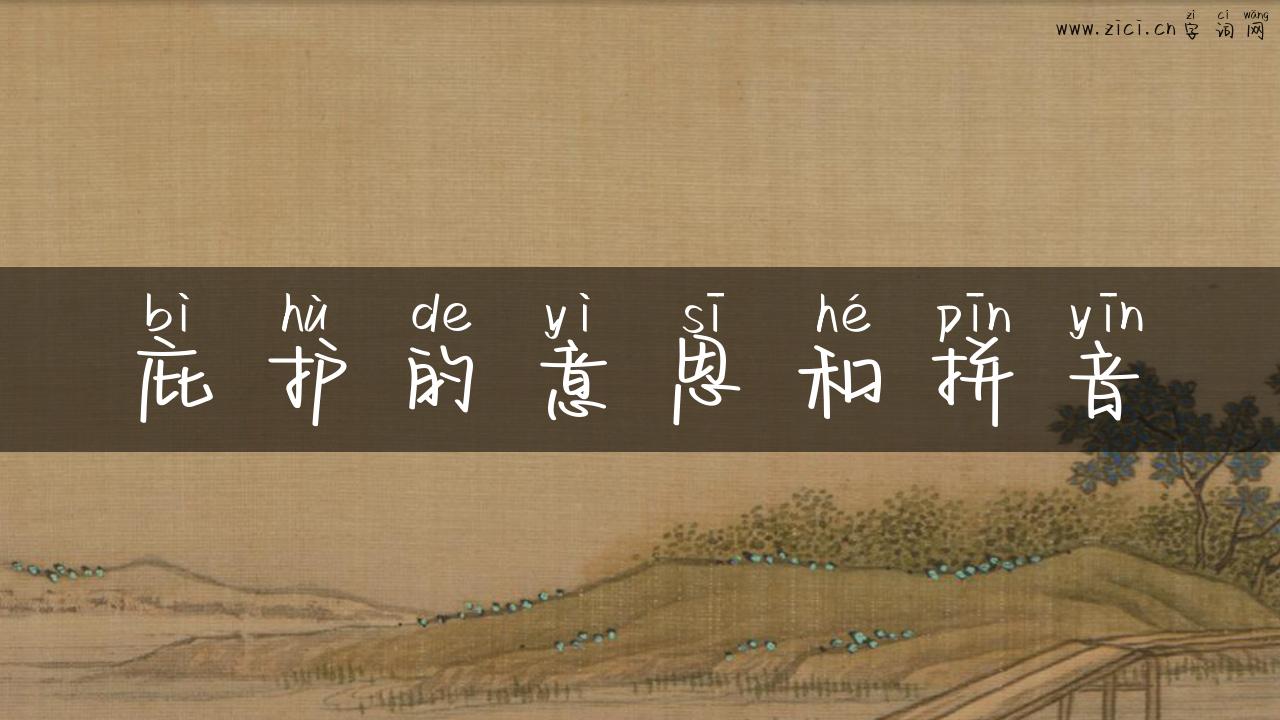 zì cí wǎng
www.zici.cn字词网
bì hù de yì sī hé pīn yīn
庇护的意思和拼音